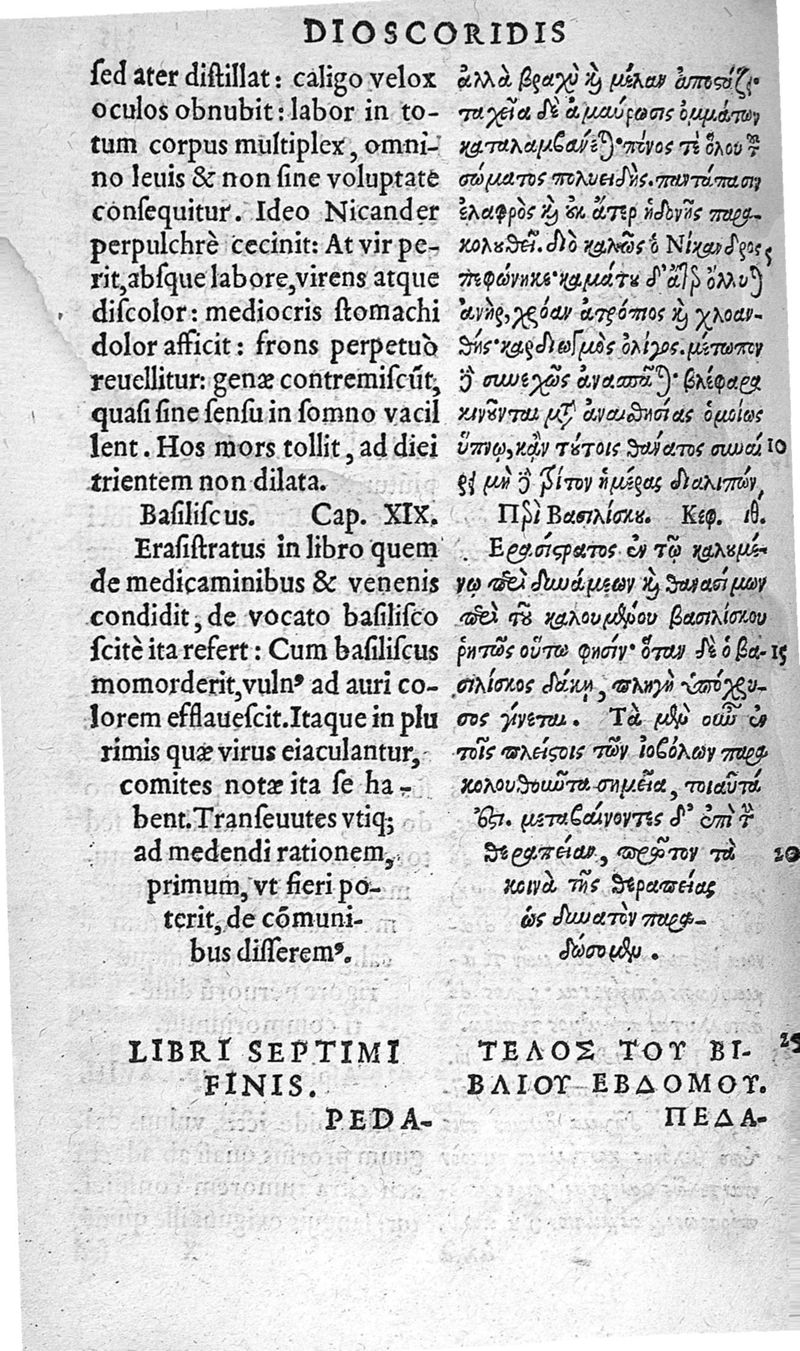 DIOSCORIDIS
sed ater distillat: caligo velox
oculos obnubit: labor in to-
tum corpus multiplex, omni-
no leuis & non sine voluptate
consequitur. Ideo Nicander
perpulchrè cecinit: At vir pe-
rit, absque labore, virens atque
discolor: mediocris stomachi
dolor afficit: frons perpetuò
reuellitur: genæ contremiscũt,
quasi sine sensu in somno vacil
lent. Hos mors tollit, ad diei
trientem non dilata.
Basiliscus. Cap. XIX.
Erasistratus in libro quem
de medicaminibus & venenis
condidit, de vocato basilisco
scitè ita refert: Cum basiliscus
momorderit, vulnꝰ ad auri co-
lorem efflauescit. Itaque in plu
rimis quæ virus eiaculantur,
comites notæ ita se ha-
bent. Transeuutes vtiq;
ad medendi rationem,
primum, vt fieri po-
terit, de cõmuni-
bus disseremꝰ.
LIBRI SEPTIMI
FINIS.
PEDA-
ἀλλὰ βραχὺ καὶ μέλαν ἀποστάζει·
ταχεῖα δὲ ἀμαύρωσις ὀμμάτων
καταλαμβάνεται· πόνος τε ὅλου τοῦ
σώματος πολυειδὴς. παντάπασιν
ἐλαφρὸς καὶ οὐκ ἄτερ ἡδονῆς παρα-
κολουθεῖ. διὸ καλῶς ὁ Νίκανδρος 5
πεφώνηκε· καμάτου δ' ἀτὰρ ὄλλυται
ἀνὴρ, χρόαν ἀτρόπος καὶ χλοαν-
θής· καρδιωγμὸς ὀλίγος. μέτωπον
δὲ συνεχῶς ἀνασπᾶται· βλέφαρα
κινοῦνται μετ' ἀναισθησίας ὁμοίως
ὕπνῳ, κᾂν τούτοις θάνατος συναι 10
ρεῖ μὴ δὲ τρίτον ἡμέρας διαλιπών,
Περὶ Βασιλίσκου. Κεφ. ιθ.
Ερασίστρατος ἐν τῷ καλουμέ-
νῳ περὶ δυνάμεων καὶ θανασίμων
περὶ τοῦ καλουμένου βασιλίσκου
ῥητῶς οὕτω φησίν· ὅταν δὲ ὁ βα- 15
σιλίσκος δάκῃ, πληγὴ ὑπόχρυ-
σος γίνεται. Τὰ μὲν οὖν ἐν
τοῖς πλείστοις τῶν ἰοβόλων παρα
κολουθοῦντα σημεῖα, τοιαῦτά
ἐστι. μεταβαίνοντες δ' ἐπὶ τὴν
θεραπείαν, πρῶτον τὰ 20
κοινὰ τῆς θεραπείας
ὡς δυνατὸν παρα-
δώσομεν.
ΤΕΛΟΣ ΤΟΥ ΒΙ- 25
ΒΛΙΟΥ ΕΒΔΟΜΟΥ.
ΠΕΔΑ-